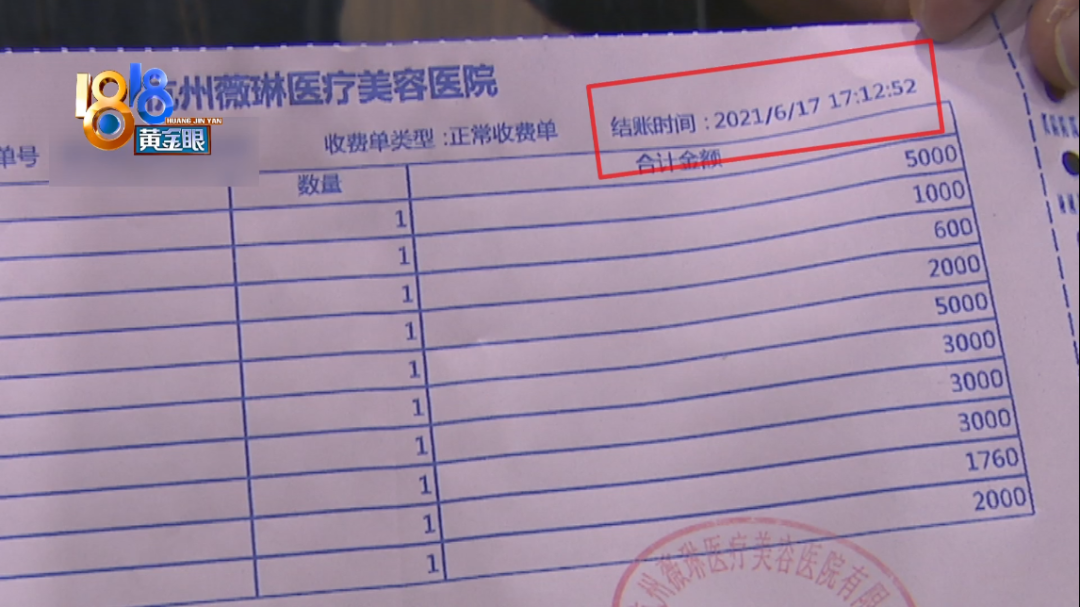 1818
HUANG JIN YAN
黄金眼
州薇琳医疗美容医院
单号
收费单类型:正常收费单
结账时间:2021/6/17 17:12:52
数量
合计金额
1 5000
1 1000
1 600
1 2000
1 5000
1 3000
1 3000
1 3000
1 1760
1 2000
州薇琳医疗美容医院有限